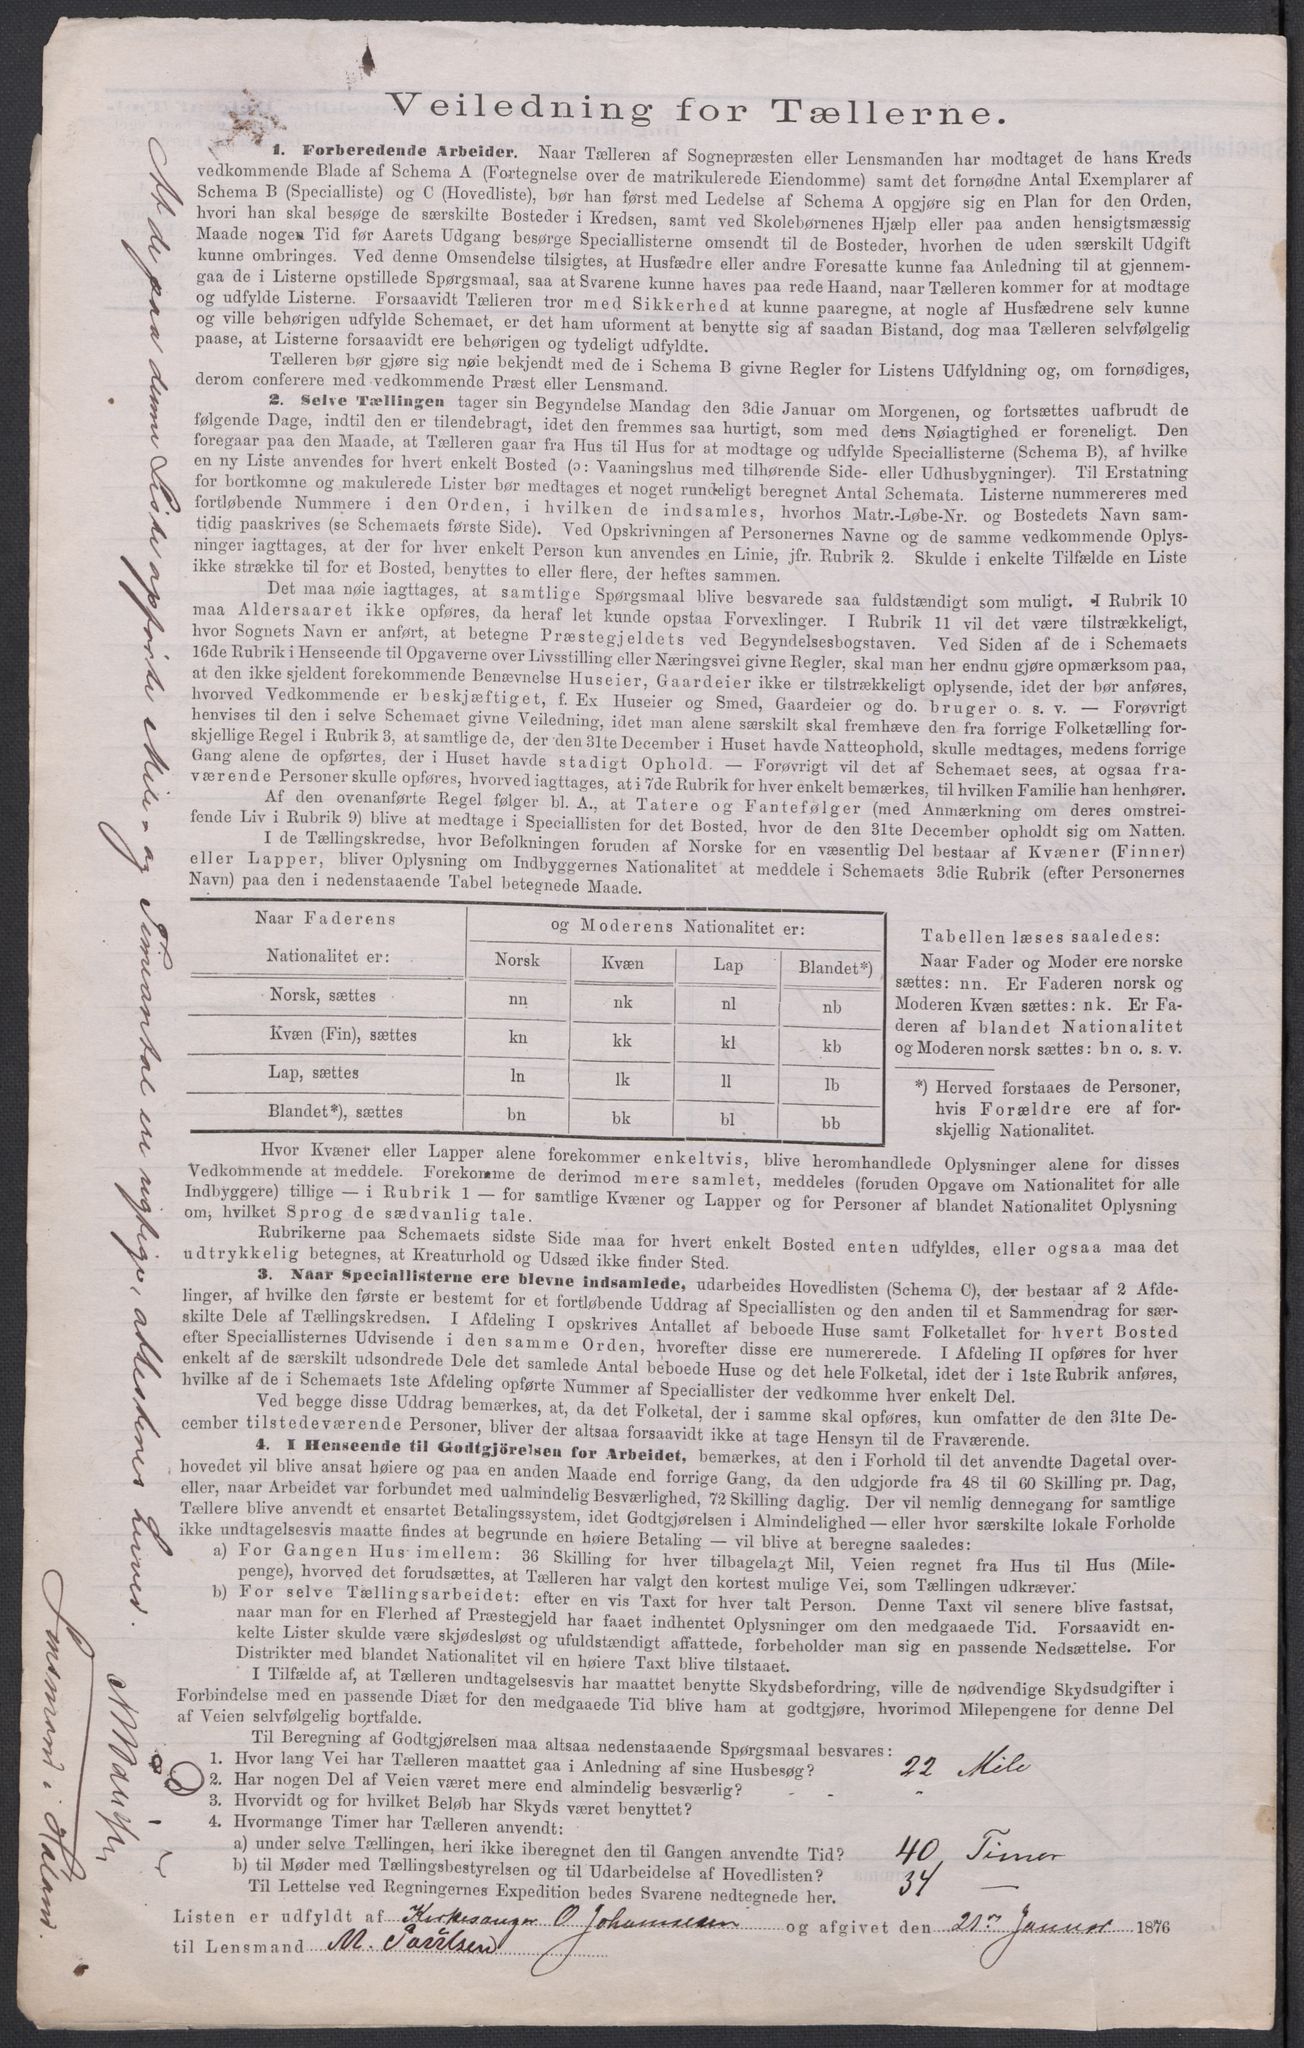 Veiledning for Tællerne.
1. Forberedende Arbeider. Naar Tælleren af Sognepræsten eller Lensmanden har modtaget de hans Kreds
vedkommende Blade af Schema A (Fortegnelse over de matrikulerede Eiendomme) samt det fornødne Antal Exemplarer af
Schema B (Specialliste) og C (Hovedliste), bør han først med Ledelse af Schema A opgjøre sig en Plan for den Orden,
hvori han skal besøge de særskilte Bosteder i Kredsen, samt ved Skolebørnenes Hjælp eller paa anden hensigtsmæssig
Maade nogen Tid før Aarets Udgang besørge Speciallisterne omsendt til de Bosteder, hvorhen de uden særskilt Udgift
kunne ombringes. Ved denne Omsendelse tilsigtes, at Husfædre eller andre Foresatte kunne faa Anledning til at gjennem-
gaa de i Listerne opstillede Spørgsmaal, saa at Svarene kunne haves paa rede Haand, naar Tælleren kommer for at modtage
og udfylde Listerne. Forsaavidt Tælleren tror med Sikkerhed at kunne paaregne, at nogle af Husfædrene selv kunne
og ville behørigen udfylde Schemaet, er det ham uforment at benytte sig af saadan Bistand, dog maa Tælleren selvfølgelig
paase, at Listerne forsaavidt ere behørigen og tydeligt udfyldte.
Tælleren bør gjøre sig nøie bekjendt med de i Schema B givne Regler for Listens Udfyldning og, om fornødiges,
derom conferere med vedkommende Præst eller Lensmand.
2. Selve Tællingen tager sin Begyndelse Mandag den 3die Januar om Morgenen, og fortsættes uafbrudt de
følgende Dage, indtil den er tilendebragt, idet den fremmes saa hurtigt, som med dens Nøiagtighed er foreneligt. Den
foregaar paa den Maade, at Tælleren gaar fra Hus til Hus for at modtage og udfylde Speciallisterne (Schema B), af hvilke
en ny Liste anvendes for hvert enkelt Bosted (ɔ: Vaaningshus med tilhørende Side- eller Udhusbygninger). Til Erstatning
for bortkomne og makulerede Lister bør medtages et noget rundeligt beregnet Antal Schemata. Listerne nummereres med
fortløbende Nummere i den Orden, i hvilken de indsamles, hvorhos Matr.-Løbe-Nr. og Bostedets Navn sam-
tidig paaskrives (se Schemaets første Side). Ved Opskrivningen af Personernes Navne og de samme vedkommende Oplys-
ninger iagttages, at der for hver enkelt Person kun anvendes en Linie, jfr. Rubrik 2. Skulde i enkelte Tilfælde en Liste
ikke strække til for et Bosted, benyttes to eller flere, der heftes sammen.
Det maa nøie iagttages, at samtlige Spørgsmaal blive besvarede saa fuldstændigt som muligt. I Rubrik 10
maa Aldersaaret ikke opføres, da heraf let kunde opstaa Forvexlinger. I Rubrik 11 vil det være tilstrækkeligt,
hvor Sognets Navn er anført, at betegne Præstegjeldets ved Begyndelsesbogstaven. Ved Siden af de i Schemaets
16de Rubrik i Henseende til Opgaverne over Livsstilling eller Næringsvei givne Regler, skal man her endnu gjøre opmærksom paa,
at den ikke sjeldent forekommende Benævnelse Huseier, Gaardeier ikke er tilstrækkeligt oplysende, idet der bør anføres,
hvorved Vedkommende er beskjæftiget, f. Ex Huseier og Smed, Gaardeier og do. bruger o. s. v. — Forøvrigt
henvises til den i selve Schemaet givne Veiledning, idet man alene særskilt skal fremhæve den fra forrige Folketælling for-
skjellige Regel i Rubrik 3, at samtlige de, der den 31te December i Huset havde Natteophold, skulle medtages, medens forrige
Gang alene de opførtes, der i Huset havde stadigt Ophold. — Forøvrigt vil det af Schemaet sees, at ogsaa fra-
værende Personer skulle opføres, hvorved iagttages, at i 7de Rubrik for hver enkelt bemærkes, til hvilken Familie han henhører.
Af den ovenanførte Regel følger bl. A., at Tatere og Fantefølger (med Anmærkning om deres omstrei-
fende Liv i Rubrik 9) blive at medtage i Speciallisten for det Bosted, hvor de den 31te December opholdt sig om Natten.
I de Tællingskredse, hvor Befolkningen foruden af Norske for en væsentlig Del bestaar af Kvæner (Finner)
eller Lapper, bliver Oplysning om Indbyggernes Nationalitet at meddele i Schemaets 3die Rubrik (efter Personernes
Navn) paa den i nedenstaaende Tabel betegnede Maade.
Naar Faderens og Moderens Nationalitet er:
Nationalitet er: Norsk Kvæn Lap Blandet*)
Norsk, sættes nn nk nl nb
Kvæn (Fin), sættes kn kk kl kb
Lap, sættes ln lk ll lb
Blandet*), sættes bn bk bl bb
Tabellen læses saaledes:
Naar Fader og Moder ere norske
sættes: nn. Er Faderen norsk og
Moderen Kvæn sættes: nk. Er Fa-
deren af blandet Nationalitet
og Moderen norsk sættes: bn o. s. v.
*) Herved forstaaes de Personer,
hvis Forældre ere af for-
skjellig Nationalitet.
Hvor Kvæner eller Lapper alene forekommer enkeltvis, blive heromhandlede Oplysninger alene for disses
Vedkommende at meddele. Forekomme de derimod mere samlet, meddeles (foruden Opgave om Nationalitet for alle
Indbyggere) tillige — i Rubrik 1 — for samtlige Kvæner og Lapper og for Personer af blandet Nationalitet Oplysning
om, hvilket Sprog de sædvanlig tale.
Rubrikerne paa Schemaets sidste Side maa for hvert enkelt Bosted enten udfyldes, eller ogsaa maa det
udtrykkelig betegnes, at Kreaturhold og Udsæd ikke finder Sted.
3. Naar Speciallisterne ere blevne indsamlede, udarbeides Hovedlisten (Schema C), der bestaar af 2 Afde-
linger, af hvilke den første er bestemt for et fortløbende Uddrag af Speciallisten og den anden til et Sammendrag for sær-
skilte Dele af Tællingskredsen. I Afdeling I opskrives Antallet af beboede Huse samt Folketallet for hvert Bosted
efter Speciallisternes Udvisende i den samme Orden, hvorefter disse ere numererede. I Afdeling II opføres for hver
enkelt af de særskilt udsondrede Dele det samlede Antal beboede Huse og det hele Folketal, idet der i 1ste Rubrik anføres,
hvilke af de i Schemaets 1ste Afdeling opførte Nummer af Speciallister der vedkomme hver enkelt Del.
Ved begge disse Uddrag bemærkes, at, da det Folketal, der i samme skal opføres, kun omfatter de den 31te De-
cember tilstedeværende Personer, bliver der altsaa forsaavidt ikke at tage Hensyn til de Fraværende.
4. I Henseende til Godtgjörelsen for Arbeidet, bemærkes, at den i Forhold til det anvendte Dagetal over-
hovedet vil blive ansat høiere og paa en anden Maade end forrige Gang, da den udgjorde fra 48 til 60 Skilling pr. Dag,
eller, naar Arbeidet var forbundet med ualmindelig Besværlighed, 72 Skilling daglig. Der vil nemlig dennegang for samtlige
Tællere blive anvendt et ensartet Betalingssystem, idet Godtgjørelsen i Almindelighed — eller hvor særskilte lokale Forholde
ikke undtagelsesvis maatte findes at begrunde en høiere Betaling — vil blive at beregne saaledes:
a) For Gangen Hus imellem: 36 Skilling for hver tilbagelagt Mil, Veien regnet fra Hus til Hus (Mile-
penge), hvorved det forudsættes, at Tælleren har valgt den kortest mulige Vei, som Tællingen udkræver.
b) For selve Tællingsarbeidet: efter en vis Taxt for hver talt Person. Denne Taxt vil senere blive fastsat,
naar man for en Flerhed af Præstegjeld har faaet indhentet Oplysninger om den medgaaede Tid. Forsaavidt en-
kelte Lister skulde være skjødesløst og ufuldstændigt affattede, forbeholder man sig en passende Nedsættelse. For
Distrikter med blandet Nationalitet vil en høiere Taxt blive tilstaaet.
I Tilfælde af, at Tælleren undtagelsesvis har maattet benytte Skydsbefordring, ville de nødvendige Skydsudgifter i
Forbindelse med en passende Diæt for den medgaaede Tid blive ham at godtgjøre, hvorimod Milepengene for denne Del
af Veien selvfølgelig bortfalde.
Til Beregning af Godtgjørelsen maa altsaa nedenstaaende Spørgsmaal besvares:
1. Hvor lang Vei har Tælleren maattet gaa i Anledning af sine Husbesøg? 22 Mile
2. Har nogen Del af Veien været mere end almindelig besværlig? - - "
3. Hvorvidt og for hvilket Beløb har Skyds været benyttet?
4. Hvormange Timer har Tælleren anvendt:
a) under selve Tællingen, heri ikke iberegnet den til Gangen anvendte Tid? 40 Timer
b) til Møder med Tællingsbestyrelsen og til Udarbeidelse af Hovedlisten? 34 —
Til Lettelse ved Regningernes Expedition bedes Svarene nedtegnede her.
Listen er udfyldt af Kirkesanger O Johannesen og afgivet den 21de Januar 1876
til Lensmand M. Paulsen
At de paa denne Liste opførte Mile- og Timeantal ere rigtige, attesteres herved.
Lensmand i Haland